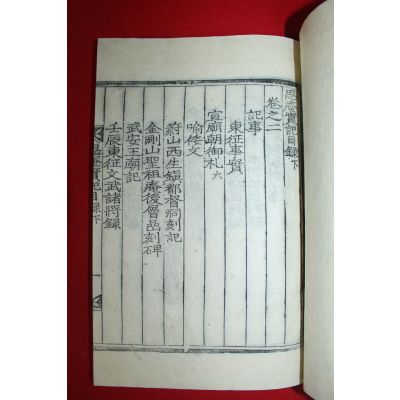 思庵實記目錄下
卷之二
記事
東征事實
宣廟朝御札六
喻倭文
蔚山西生鎭都督洞刻記
金剛山聖祖庵後層岩刻碑
武安王廟記
壬辰東征文武諸將錄
思庵實記目錄下
一